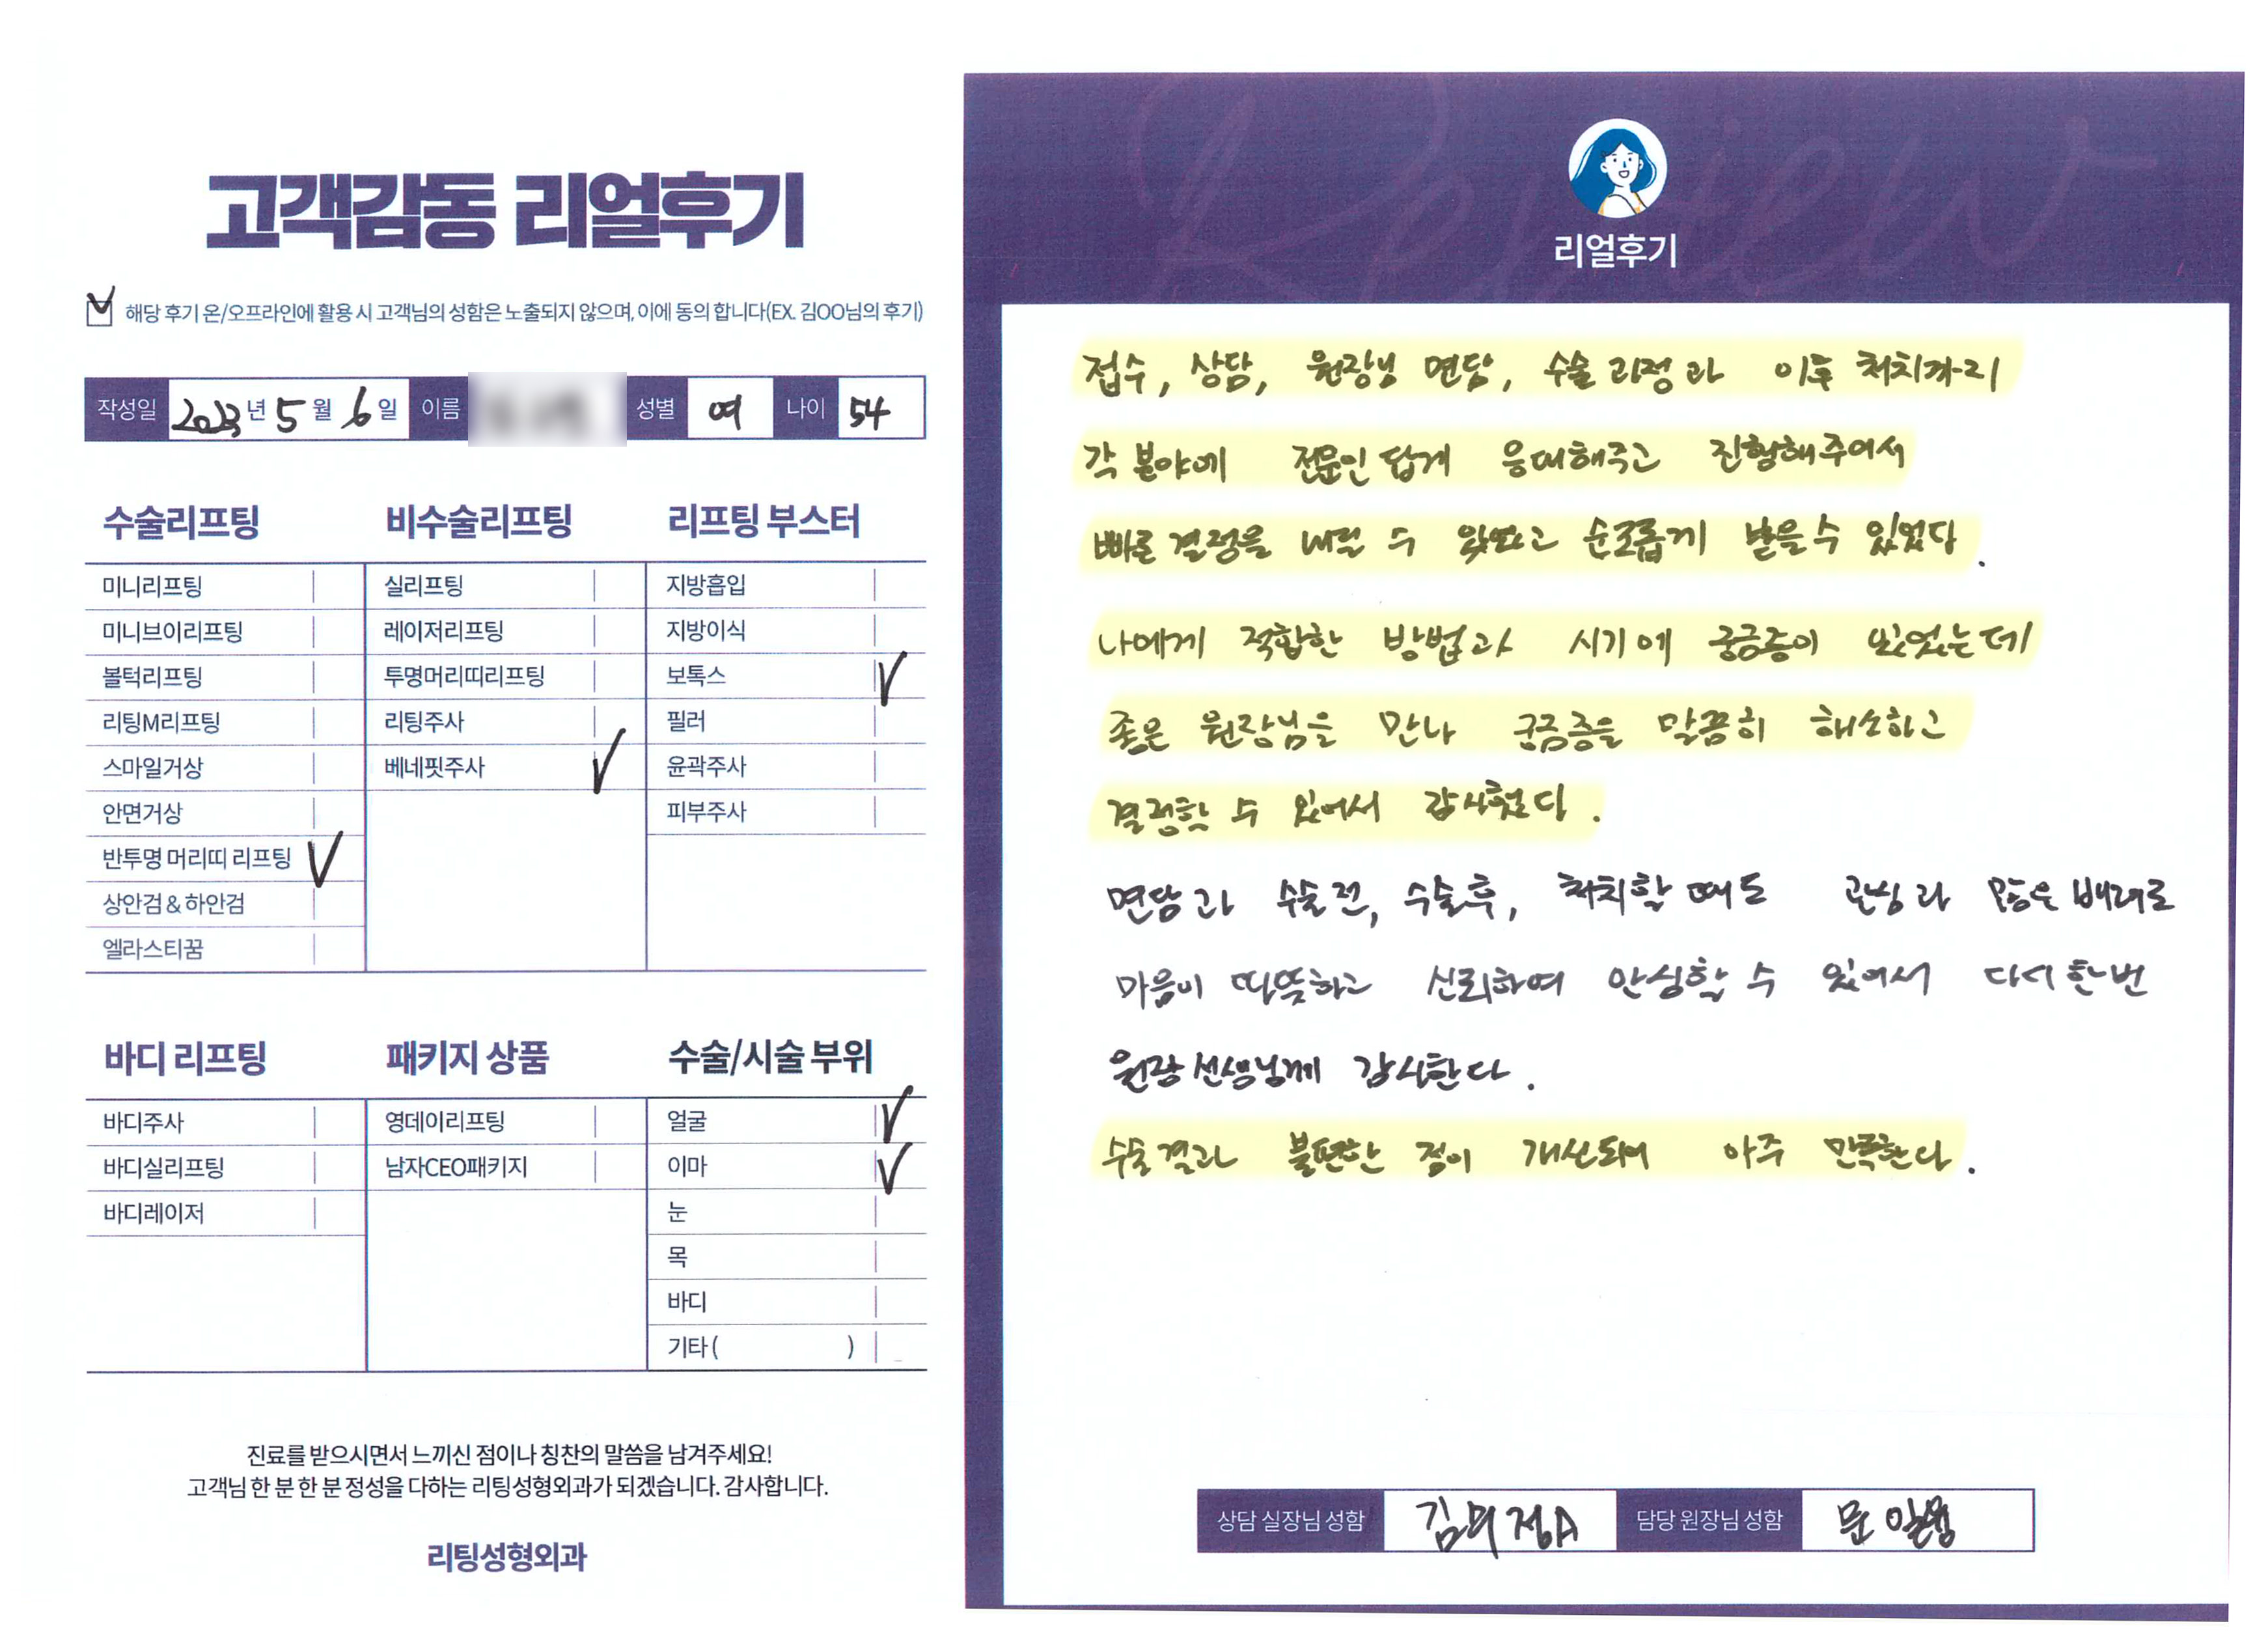 고객감동 리얼후기
해당 후기 온/오프라인에 활용 시 고객님의 성함은 노출되지 않으며, 이에 동의 합니다(EX. 김OO님의 후기)
작성일 2023년 5월 6일 이름 성별 여 나이 54
수술리프팅
미니리프팅
미니브이리프팅
볼턱리프팅
리팅M리프팅
스마일거상
안면거상
반투명 머리띠 리프팅
상안검 & 하안검
엘라스티꿈
비수술리프팅
실리프팅
레이저리프팅
투명머리띠리프팅
리팅주사
베네핏주사
리프팅 부스터
지방흡입
지방이식
보톡스
필러
윤곽주사
피부주사
바디 리프팅
바디주사
바디실리프팅
바디레이저
패키지 상품
영데이리프팅
남자CEO패키지
수술/시술 부위
얼굴
이마
눈
목
바디
기타 ( )
진료를 받으시면서 느끼신 점이나 칭찬의 말씀을 남겨주세요!
고객님 한 분 한 분 정성을 다하는 리팅성형외과가 되겠습니다. 감사합니다.
리팅성형외과
Review
리얼후기
접수, 상담, 원장님 면담, 수술 과정과 이후 처치까지
각 분야에 전문인 답게 응대해주고 진행해주어서
빠른 결정을 내릴 수 있었고 순조롭게 받을 수 있었다.
나에게 적합한 방법과 시기에 궁금증이 있었는데
좋은 원장님을 만나 궁금증을 말끔히 해소하고
결정할 수 있어서 감사했다.
면담과 수술전, 수술후, 처치할 때도 관심과 많은 배려로
마음이 따뜻하고 신뢰하여 안심할 수 있어서 다시 한번
원장선생님께 감사한다.
수술결과 불편한 점이 개선되어 아주 만족한다.
상담 실장님 성함 김미정A 담당 원장님 성함 문